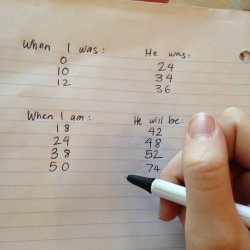 When I was: He was:
0 24
10 34
12 36
When I am: He will be:
18 42
24 48
38 52
50 74